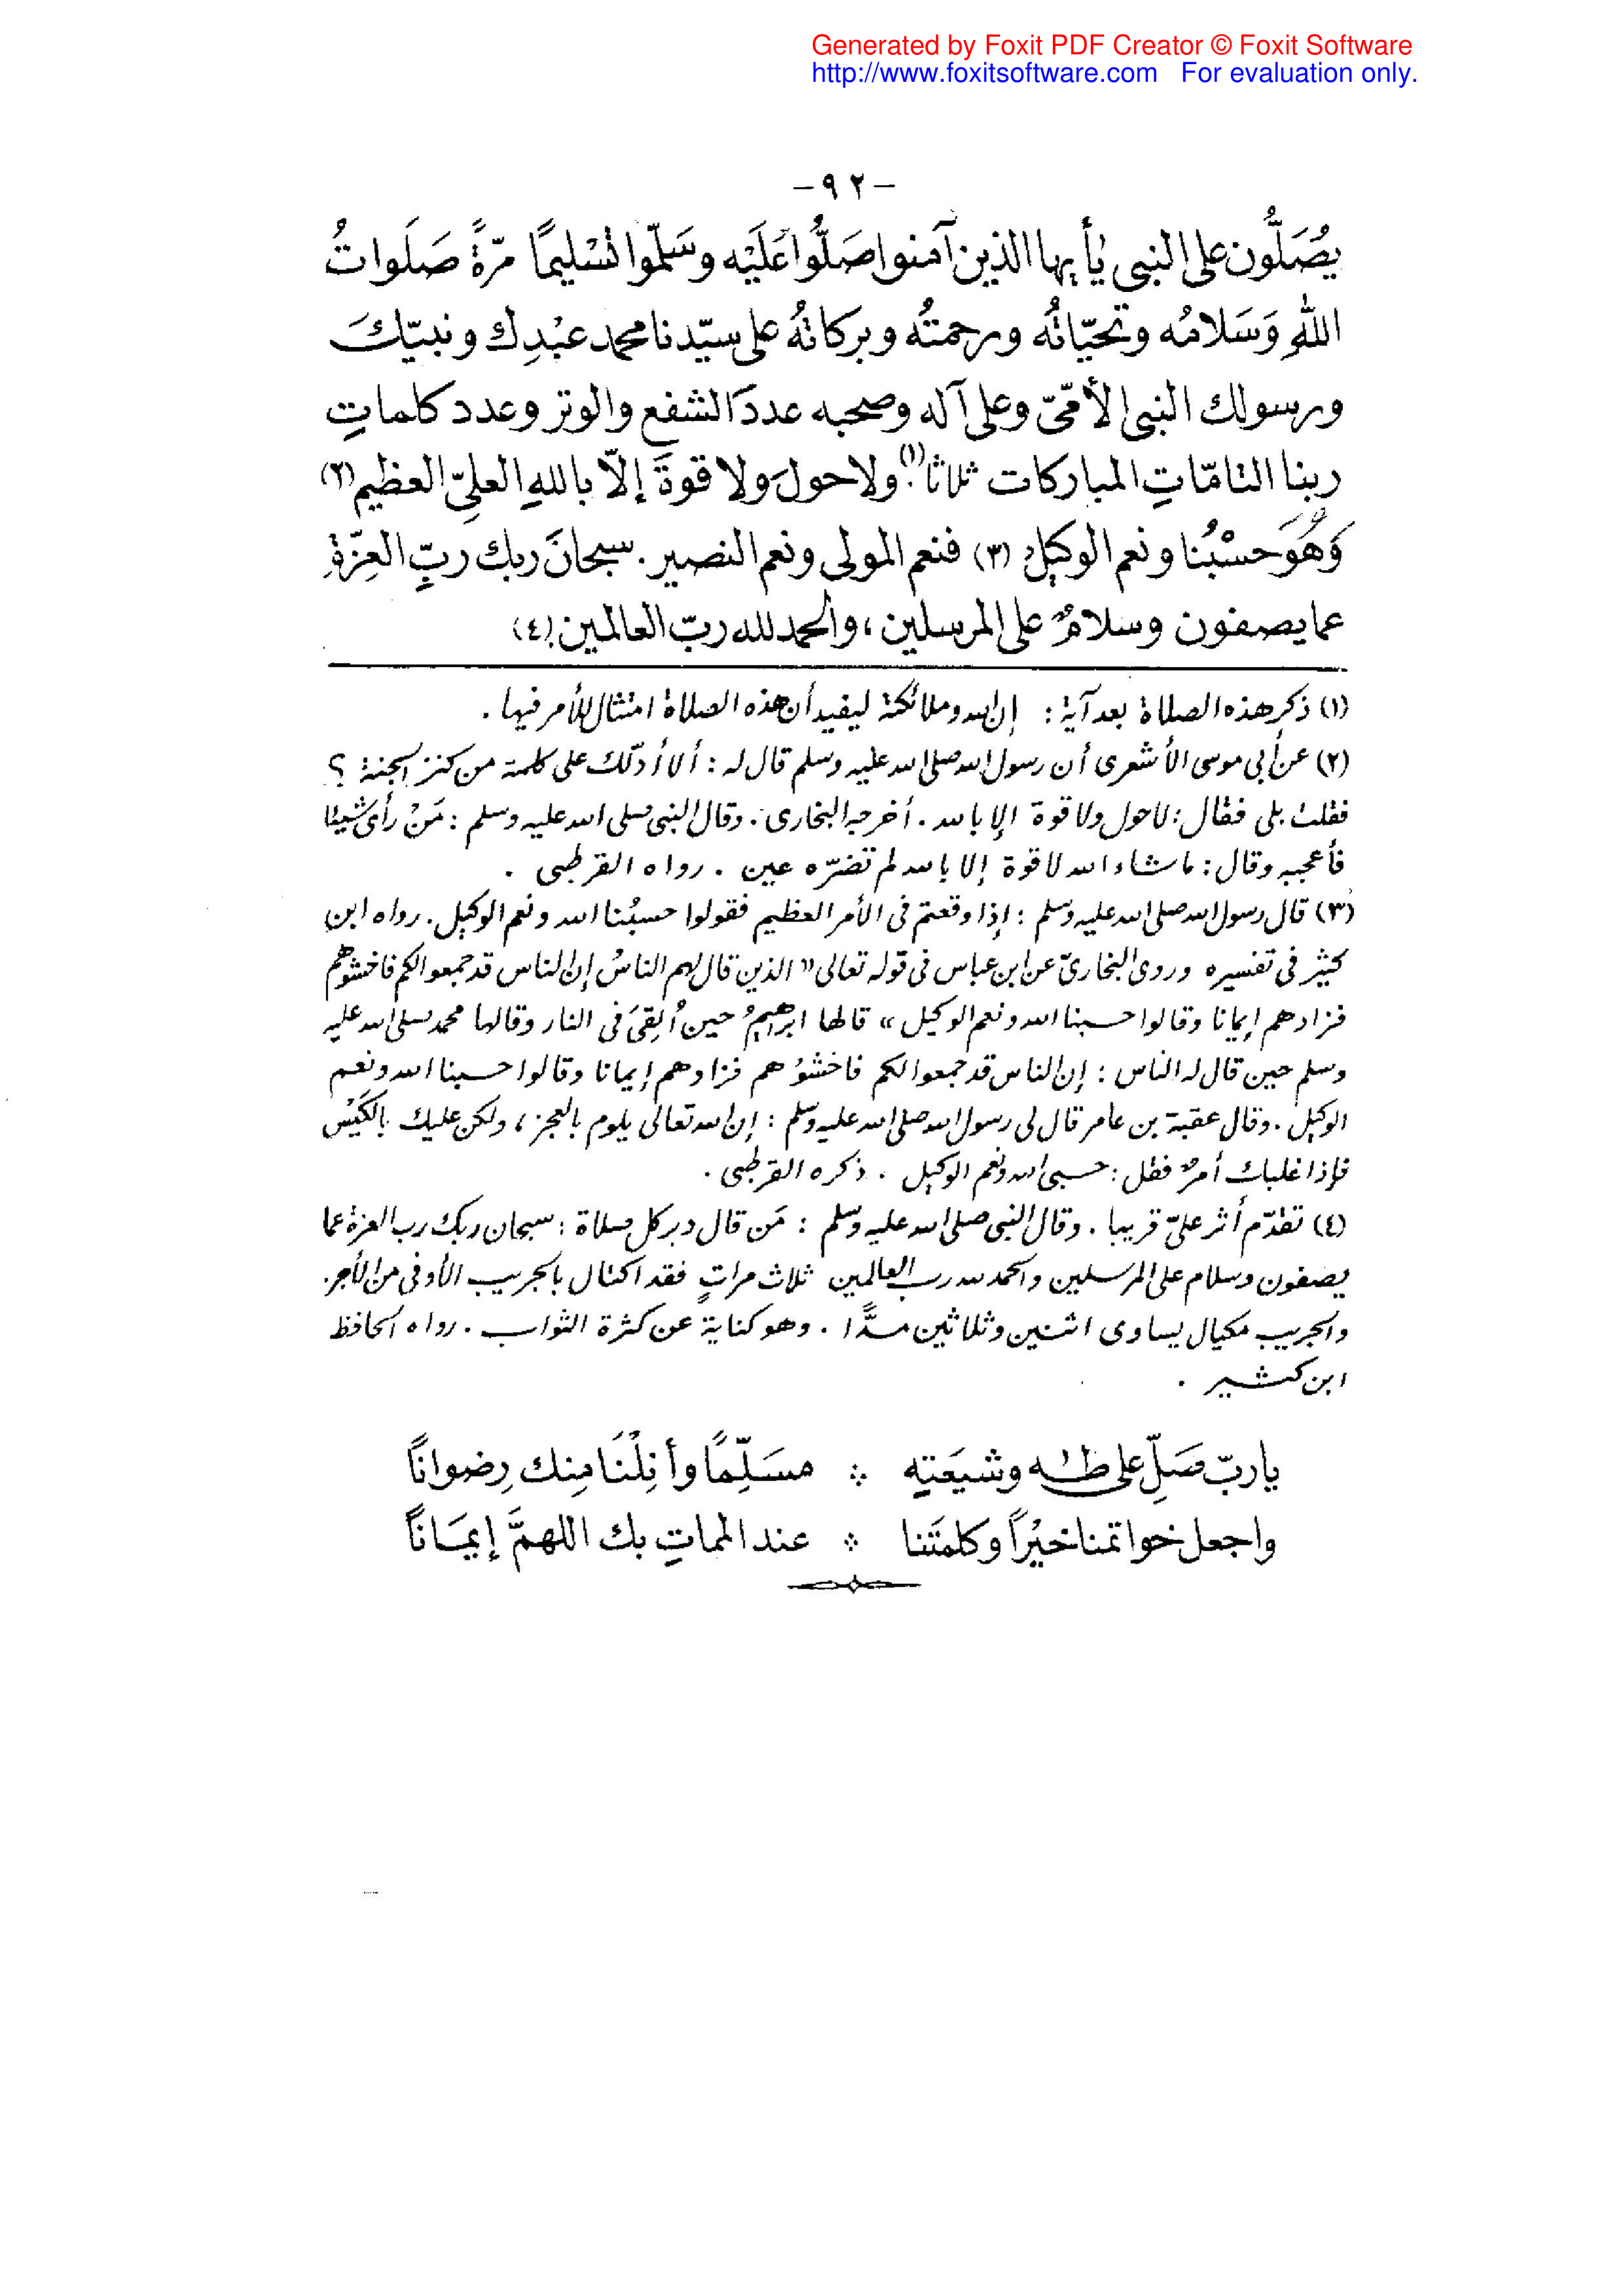 Generated by Foxit PDF Creator © Foxit Software
http://www.foxitsoftware.com For evaluation only.
-٩٢-
يُصَلُّون على النبى يٰأيها الذين آمنوا صَلُّوا عَلَيْه وسَلّموا تسْليمًا مرّةً صَلَواتُ
اللهِ وَسَلامُه وتحيّاتُه ورحمتُه وبركاتُه على سيّدنا محمد عبْدِك ونبيّكَ
ورسولك النبى الأمّىّ وعلى آله وصحبه عددَ الشفع والوتر وعدد كلماتِ
ربنا التامّاتِ المباركات ثلاثا(١). ولاحولَ ولا قوةَ إلاّ باللهِ العلىِّ العظيم (٢)
وَهُوَ حسْبُنا ونعم الوكيلُ (٣) فنعم المولى ونعم النصير. سبحانَ ربك ربِّ العِزّةِ
عما يصفون وسلامٌ على المرسلين، والحمد لله ربّ العالمين (٤)
(١) ذكر هذه الصلاة بعد آية : إن الله وملائكته ليفيد أن هذه الصلاة امتثال للأمر فيها .
(٢) عن أبى موسى الأشعرى أن رسول الله صلى الله عليه وسلم قال له : ألا أدلّك على كلمة من كنز الجنة ؟
فقلت بلى فقال : لاحول ولا قوة إلا بالله . أخرجه البخارى . وقال النبى صلى الله عليه وسلم : مَنْ رأى شيئا
فأعجبه وقال : ما شاء الله لا قوة إلا بالله لم تضرّه عين . رواه القرطبى .
(٣) قال رسول الله صلى الله عليه وسلم : إذا وقعتم فى الأمر العظيم فقولوا حسبُنا الله ونعم الوكيل . رواه ابن
كثير فى تفسيره وروى البخارىّ عن ابن عباس فى قوله تعالى « الذين قال لهم الناسُ إن الناس قد جمعوا لكم فاخشوهم
فزادهم إيمانا وقالوا حسبنا الله ونعم الوكيل » قالها ابراهيمُ حين أُلقِىَ فى النار وقالها محمد صلى الله عليه
وسلم حين قال له الناس : إن الناس قد جمعوا لكم فاخشوْهم فزادهم إيمانا وقالوا حسبنا الله ونعم
الوكيل . وقال عقبة بن عامر قال لى رسول الله صلى الله عليه وسلم : إن الله تعالى يلوم بالعجز ، ولكن عليك بالكَيْس
فإذا غلبك أمرٌ فقل : حسبى الله ونعم الوكيل . ذكره القرطبى .
(٤) تقدّم أثر علىّ قريبا . وقال النبى صلى الله عليه وسلم : مَن قال دبر كل صلاة : سبحان ربك رب العزة عما
يصفون وسلام على المرسلين والحمد لله رب العالمين ثلاث مراتٍ فقد اكتال بالجريب الأوفى من الأجر.
والجريب مكيال يساوى اثنين وثلاثين مدًّا . وهو كناية عن كثرة الثواب . رواه الحافظ
ابن كثير .
يا ربّ صَلِّ على طٰه وشيعَتِه ⁂ مسَلِّمًا وأنِلْنَا مِنك رِضوانًا
واجعل خواتمنا خيْراً وكلمتَنا ⁂ عند المماتِ بك اللهمَّ إيمَانًا